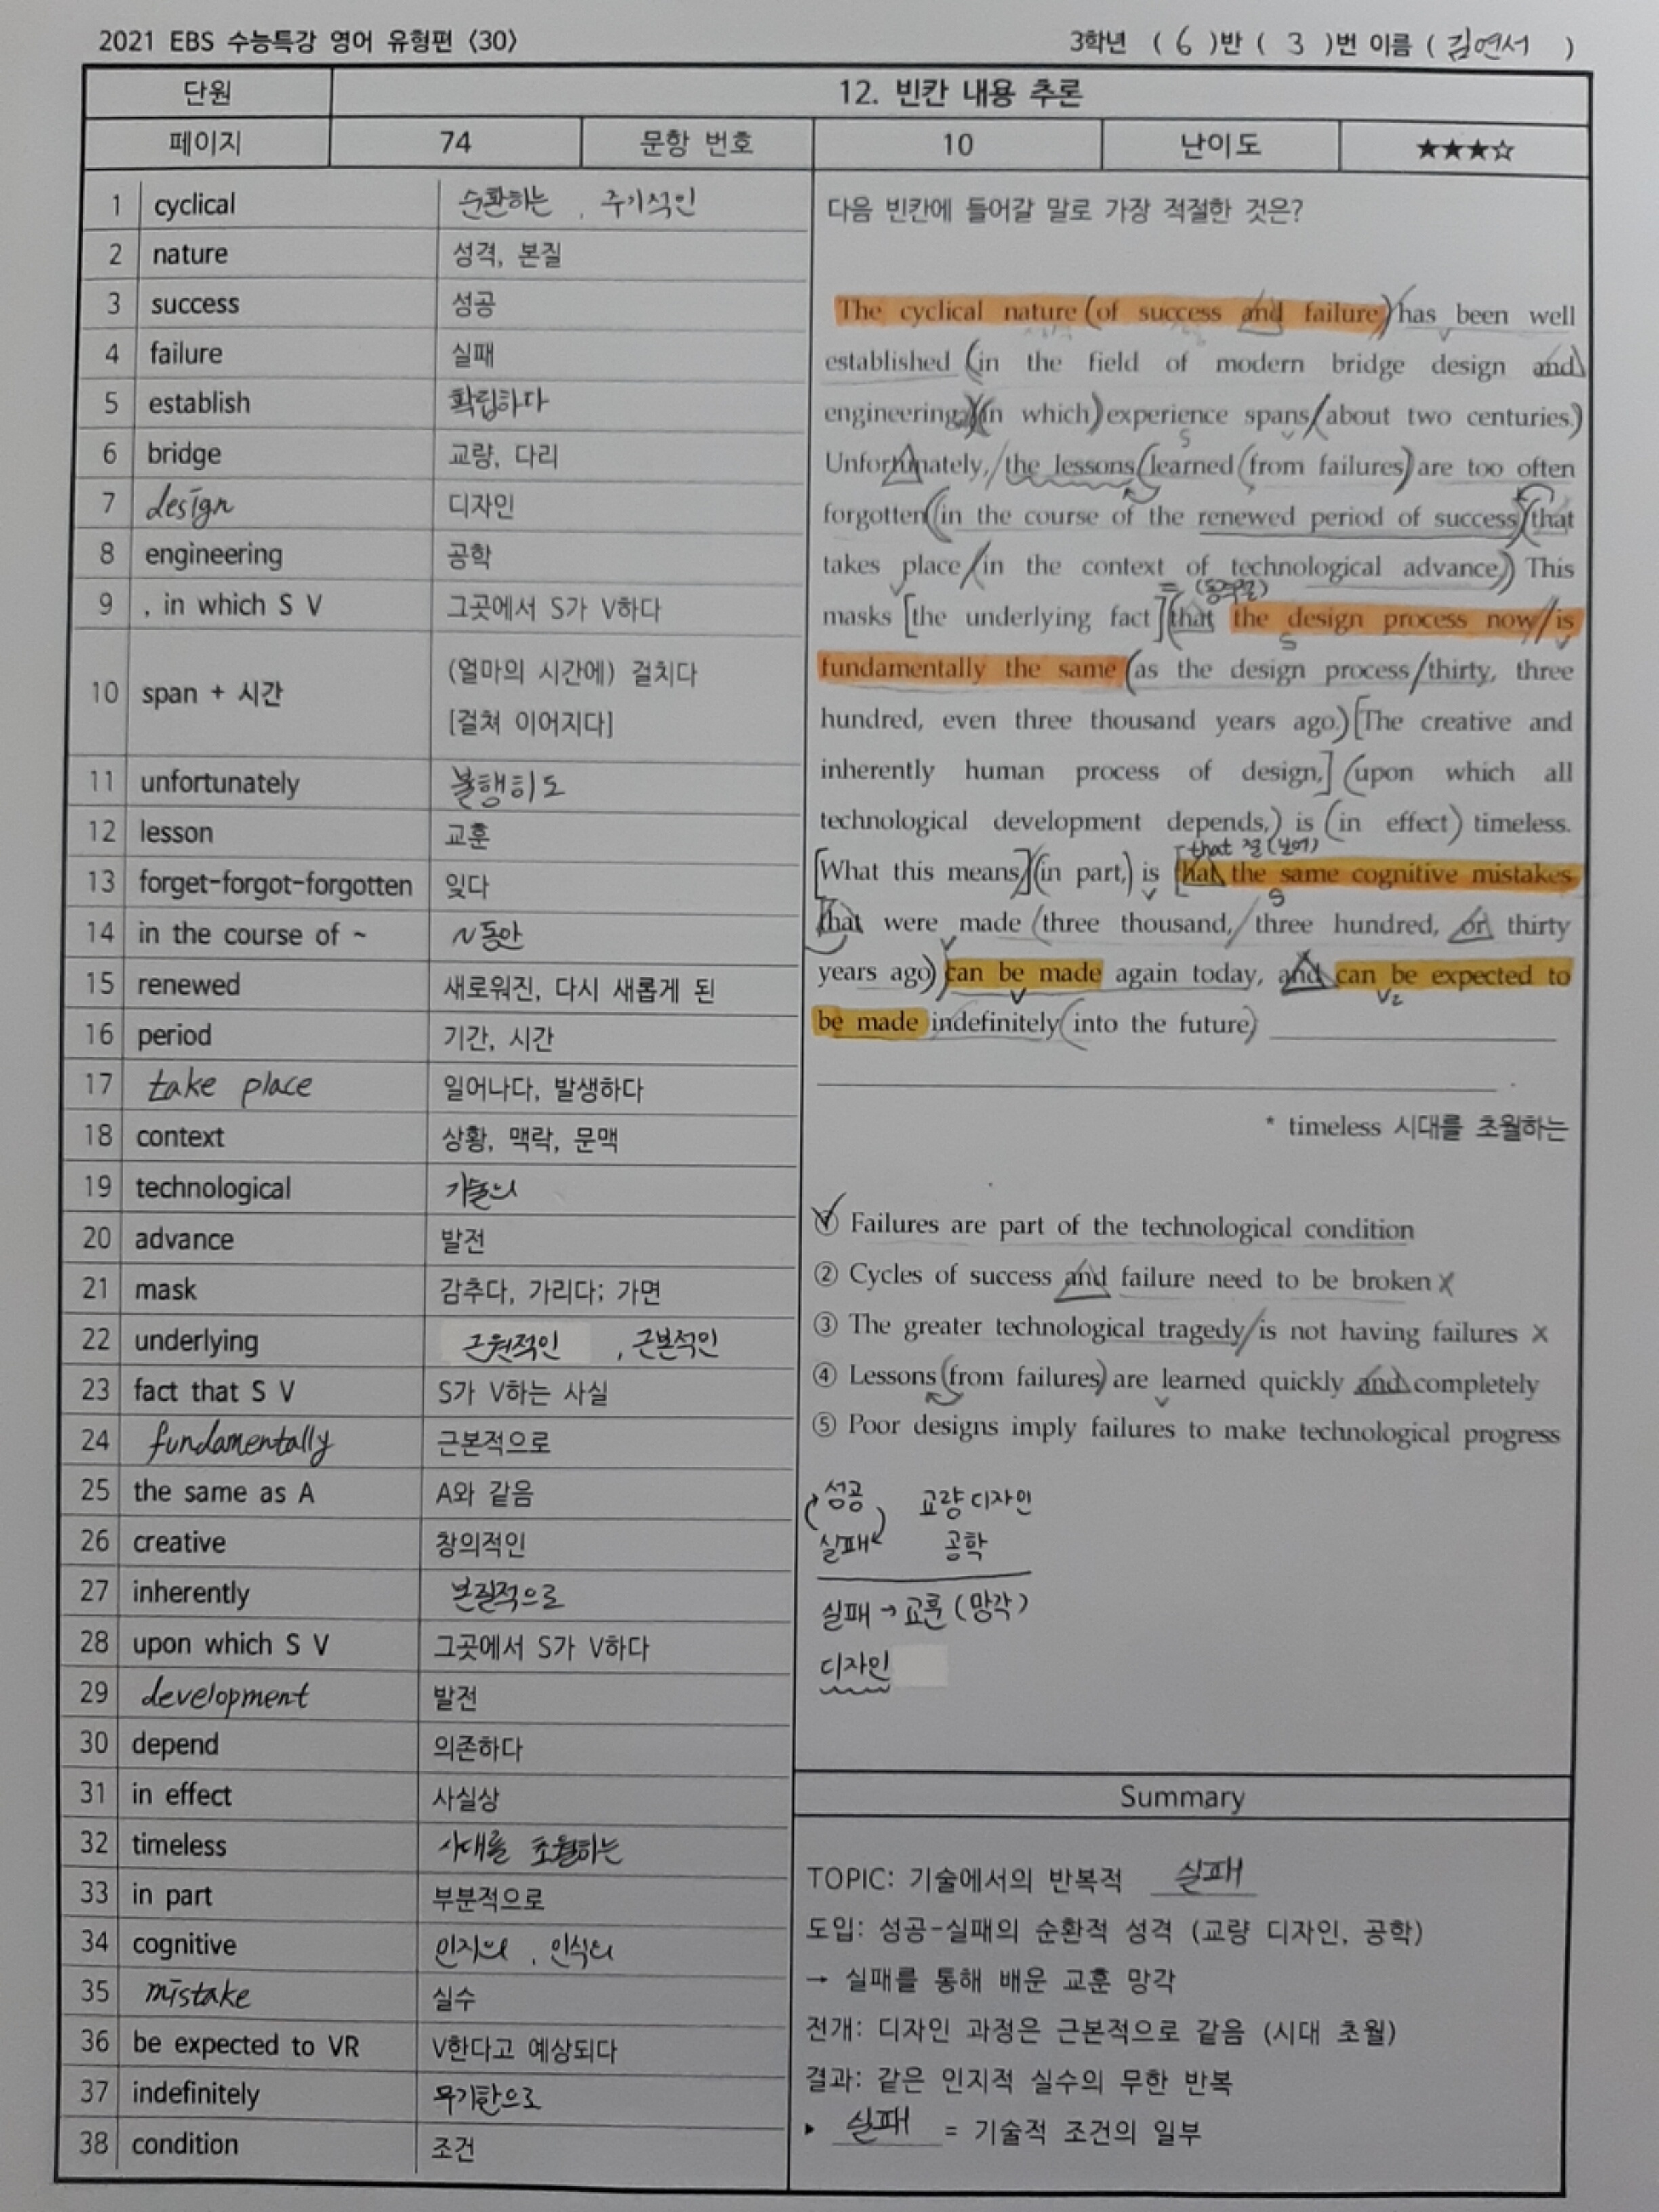 2021 EBS 수능특강 영어 유형편 〈30〉 3학년 ( 6 )반 ( 3 )번 이름 ( 김연서 )
단원 12. 빈칸 내용 추론
페이지 74 문항 번호 10 난이도 ★★★☆
1 cyclical 순환하는 , 주기적인
2 nature 성격, 본질
3 success 성공
4 failure 실패
5 establish 확립하다
6 bridge 교량, 다리
7 design 디자인
8 engineering 공학
9 , in which S V 그곳에서 S가 V하다
10 span + 시간 (얼마의 시간에) 걸치다
[걸쳐 이어지다]
11 unfortunately 불행히도
12 lesson 교훈
13 forget-forgot-forgotten 잊다
14 in the course of ~ ~동안
15 renewed 새로워진, 다시 새롭게 된
16 period 기간, 시간
17 take place 일어나다, 발생하다
18 context 상황, 맥락, 문맥
19 technological 기술의
20 advance 발전
21 mask 감추다, 가리다; 가면
22 underlying 근원적인 , 근본적인
23 fact that S V S가 V하는 사실
24 fundamentally 근본적으로
25 the same as A A와 같음
26 creative 창의적인
27 inherently 본질적으로
28 upon which S V 그곳에서 S가 V하다
29 development 발전
30 depend 의존하다
31 in effect 사실상
32 timeless 시대를 초월하는
33 in part 부분적으로
34 cognitive 인지의 , 인식의
35 mistake 실수
36 be expected to VR V한다고 예상되다
37 indefinitely 무기한으로
38 condition 조건
다음 빈칸에 들어갈 말로 가장 적절한 것은?
The cyclical nature (of success and failure) has been well
established (in the field of modern bridge design and
engineering,) (in which) experience spans (about two centuries.)
S V
Unfortunately, the lessons (learned (from failures) are too often
forgotten (in the course of the renewed period of success) (that
takes place (in the context of technological advance.) This
= (동격절)
masks [the underlying fact] (that the design process now is
S V
fundamentally the same (as the design process thirty, three
hundred, even three thousand years ago.) [The creative and
inherently human process of design,] (upon which all
technological development depends,) is (in effect) timeless.
that 절 (보어)
[What this means] (in part,) is [that the same cognitive mistakes
V S
that were made (three thousand, three hundred, or thirty
V
years ago) can be made again today, and can be expected to
V V2
be made indefinitely (into the future)
* timeless 시대를 초월하는
① Failures are part of the technological condition
② Cycles of success and failure need to be broken X
③ The greater technological tragedy is not having failures X
④ Lessons (from failures) are learned quickly and completely
V
⑤ Poor designs imply failures to make technological progress
성공 교량 디자인
실패 공학
실패 → 교훈 (망각)
디자인
Summary
TOPIC: 기술에서의 반복적 실패
도입: 성공-실패의 순환적 성격 (교량 디자인, 공학)
→ 실패를 통해 배운 교훈 망각
전개: 디자인 과정은 근본적으로 같음 (시대 초월)
결과: 같은 인지적 실수의 무한 반복
▸ 실패 = 기술적 조건의 일부